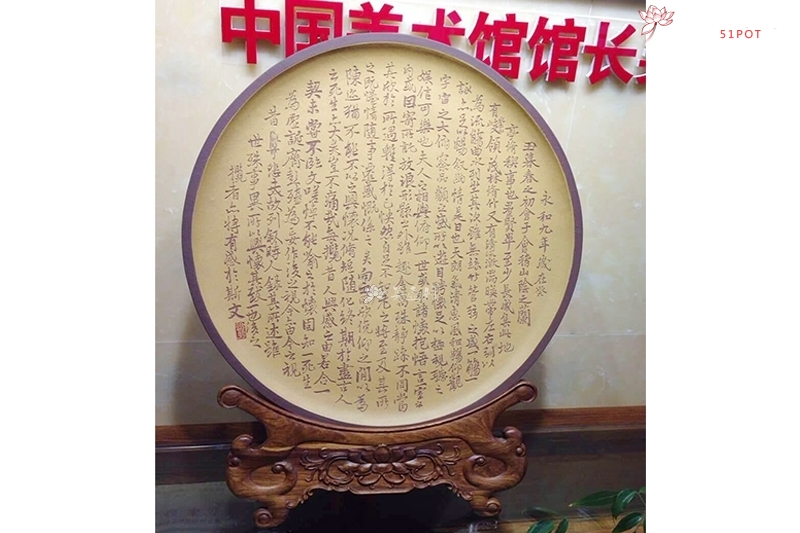 中国美术馆馆长
51POT
永和九年歲在癸
丑暮春之初會于會稽山陰之蘭
亭脩稧事也羣賢畢至少長咸集此地
有峻領茂林脩竹又有清流激湍暎帶左右引以
為流觴曲水列坐其次雖無絲竹管弦之盛一觴一
詠亦足以暢敘幽情是日也天朗氣清惠風和暢仰觀
宇宙之大俯察品類之盛所以遊目騁懷足以極視聽之
娛信可樂也夫人之相與俯仰一世或取諸懷抱悟言一室之
內或因寄所託放浪形骸之外雖趣舍萬殊靜躁不同當
其欣於所遇暫得於己快然自足不知老之將至及其所
之既惓情隨事遷感慨係之矣向之所欣俛仰之間以為
陳迹猶不能不以之興懷況脩短隨化終期於盡古人
云死生亦大矣豈不痛哉每攬昔人興感之由若合一
契未嘗不臨文嗟悼不能喻之於懷固知一死生
為虛誕齊彭殤為妄作後之視今亦由今之視
昔悲夫故列敘時人錄其所述雖
世殊事異所以興懷其致一也後之
攬者亦將有感於斯文